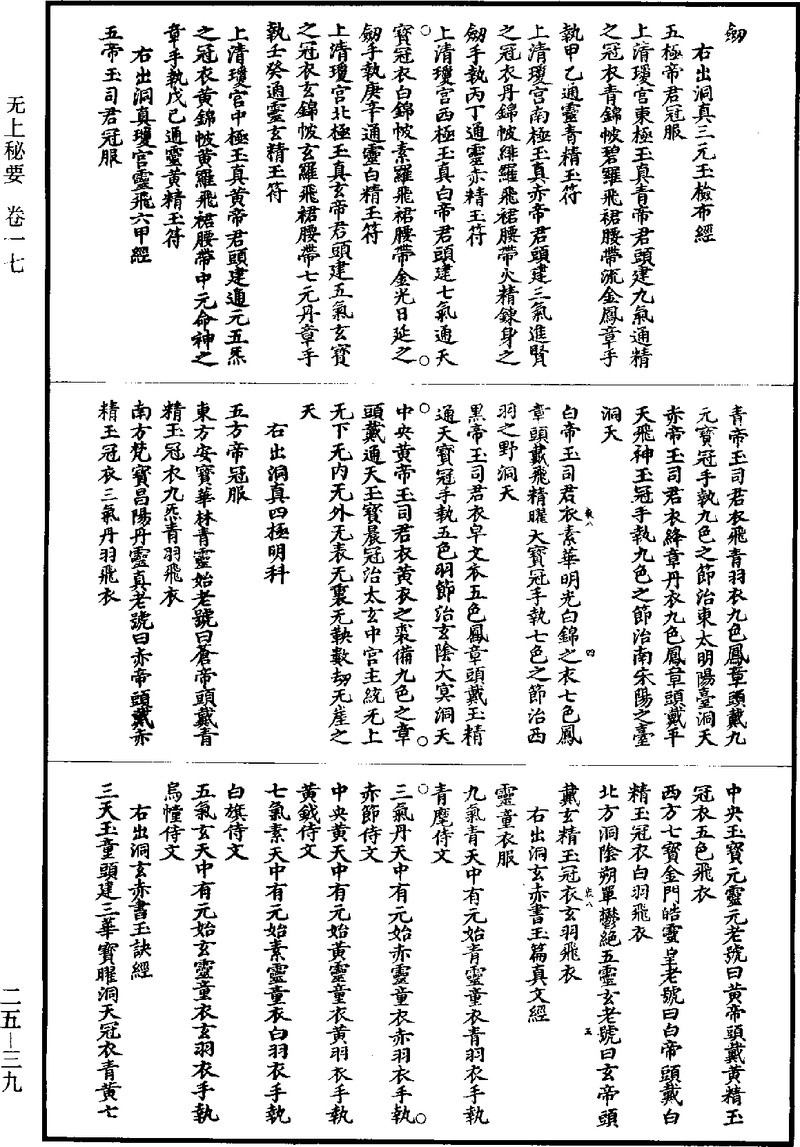 无上秘要　卷一七
二五—三九
劒
右出洞真三元玉檢布經
五極帝君冠服
上清瓊宮東極玉真青帝君頭建九氣通精
之冠衣青錦帔碧羅飛裙腰帶流金鳳章手
執甲乙通靈青精玉符
上清瓊宮南極玉真赤帝君頭建三氣進賢
之冠衣丹錦帔緋羅飛裙腰帶火精鍊身之
劒手執丙丁通靈赤精玉符
上清瓊宮西極玉真白帝君頭建七氣通天
寶冠衣白錦帔素羅飛裙腰帶金光日延之
劒手執庚辛通靈白精玉符
上清瓊宮北極玉真玄帝君頭建五氣玄寶
之冠衣玄錦帔玄羅飛裙腰帶七元丹章手
執壬癸通靈玄精玉符
上清瓊宮中極玉真黃帝君頭建通元五炁
之冠衣黃錦帔黃羅飛裙腰帶中元命神之
章手執戊己通靈黃精玉符
右出洞真瓊宮靈飛六甲經
五帝玉司君冠服
青帝玉司君衣飛青羽衣九色鳳章頭戴九
元寶冠手執九色之節治東太明陽臺洞天
赤帝玉司君衣絳章丹衣九色鳳章頭戴平
天飛神玉冠手執九色之節治南朱陽之臺
洞天
白帝玉司君衣素華明光白錦之衣七色鳳
章頭戴飛精曜天寶冠手執七色之節治西
羽之野洞天
黑帝玉司君衣皁文衣五色鳳章頭戴玉精
通天寶冠手執五色羽節治玄陰大冥洞天
中央黃帝玉司君衣黃衣之裘備九色之章
頭戴通天玉寶晨冠治太玄中宮主統无上
无下无內无外无表无裏无鞅數劫无崖之
天
右出洞真四極明科
五方帝冠服
東方安寶華林青靈始老號曰蒼帝頭戴青
精玉冠衣九炁青羽飛衣
南方梵寶昌陽丹靈真老號曰赤帝頭戴赤
精玉冠衣三氣丹羽飛衣
中央玉寶元靈元老號曰黃帝頭戴黃精玉
冠衣五色飛衣
西方七寶金門皓靈皇老號曰白帝頭戴白
精玉冠衣白羽飛衣
北方洞陰朔單鬱絕五靈玄老號曰玄帝頭
戴玄精玉冠衣玄羽飛衣
右出洞玄赤書玉篇真文經
靈童衣服
九氣青天中有元始青靈童衣青羽衣手執
青麾侍文
三氣丹天中有元始赤靈童衣赤羽衣手執
赤節侍文
中央黃天中有元始黃靈童衣黃羽衣手執
黃鉞侍文
七氣素天中有元始素靈童衣白羽衣手執
白旗侍文
五氣玄天中有元始玄靈童衣玄羽衣手執
烏幢侍文
右出洞玄赤書玉訣經
三天玉童頭建三華寶曜洞天冠衣青黃七